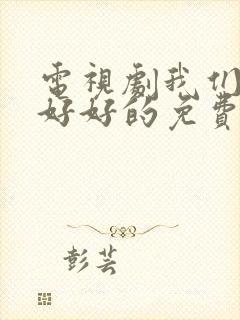 電視劇我们
好好的免費
彭芸